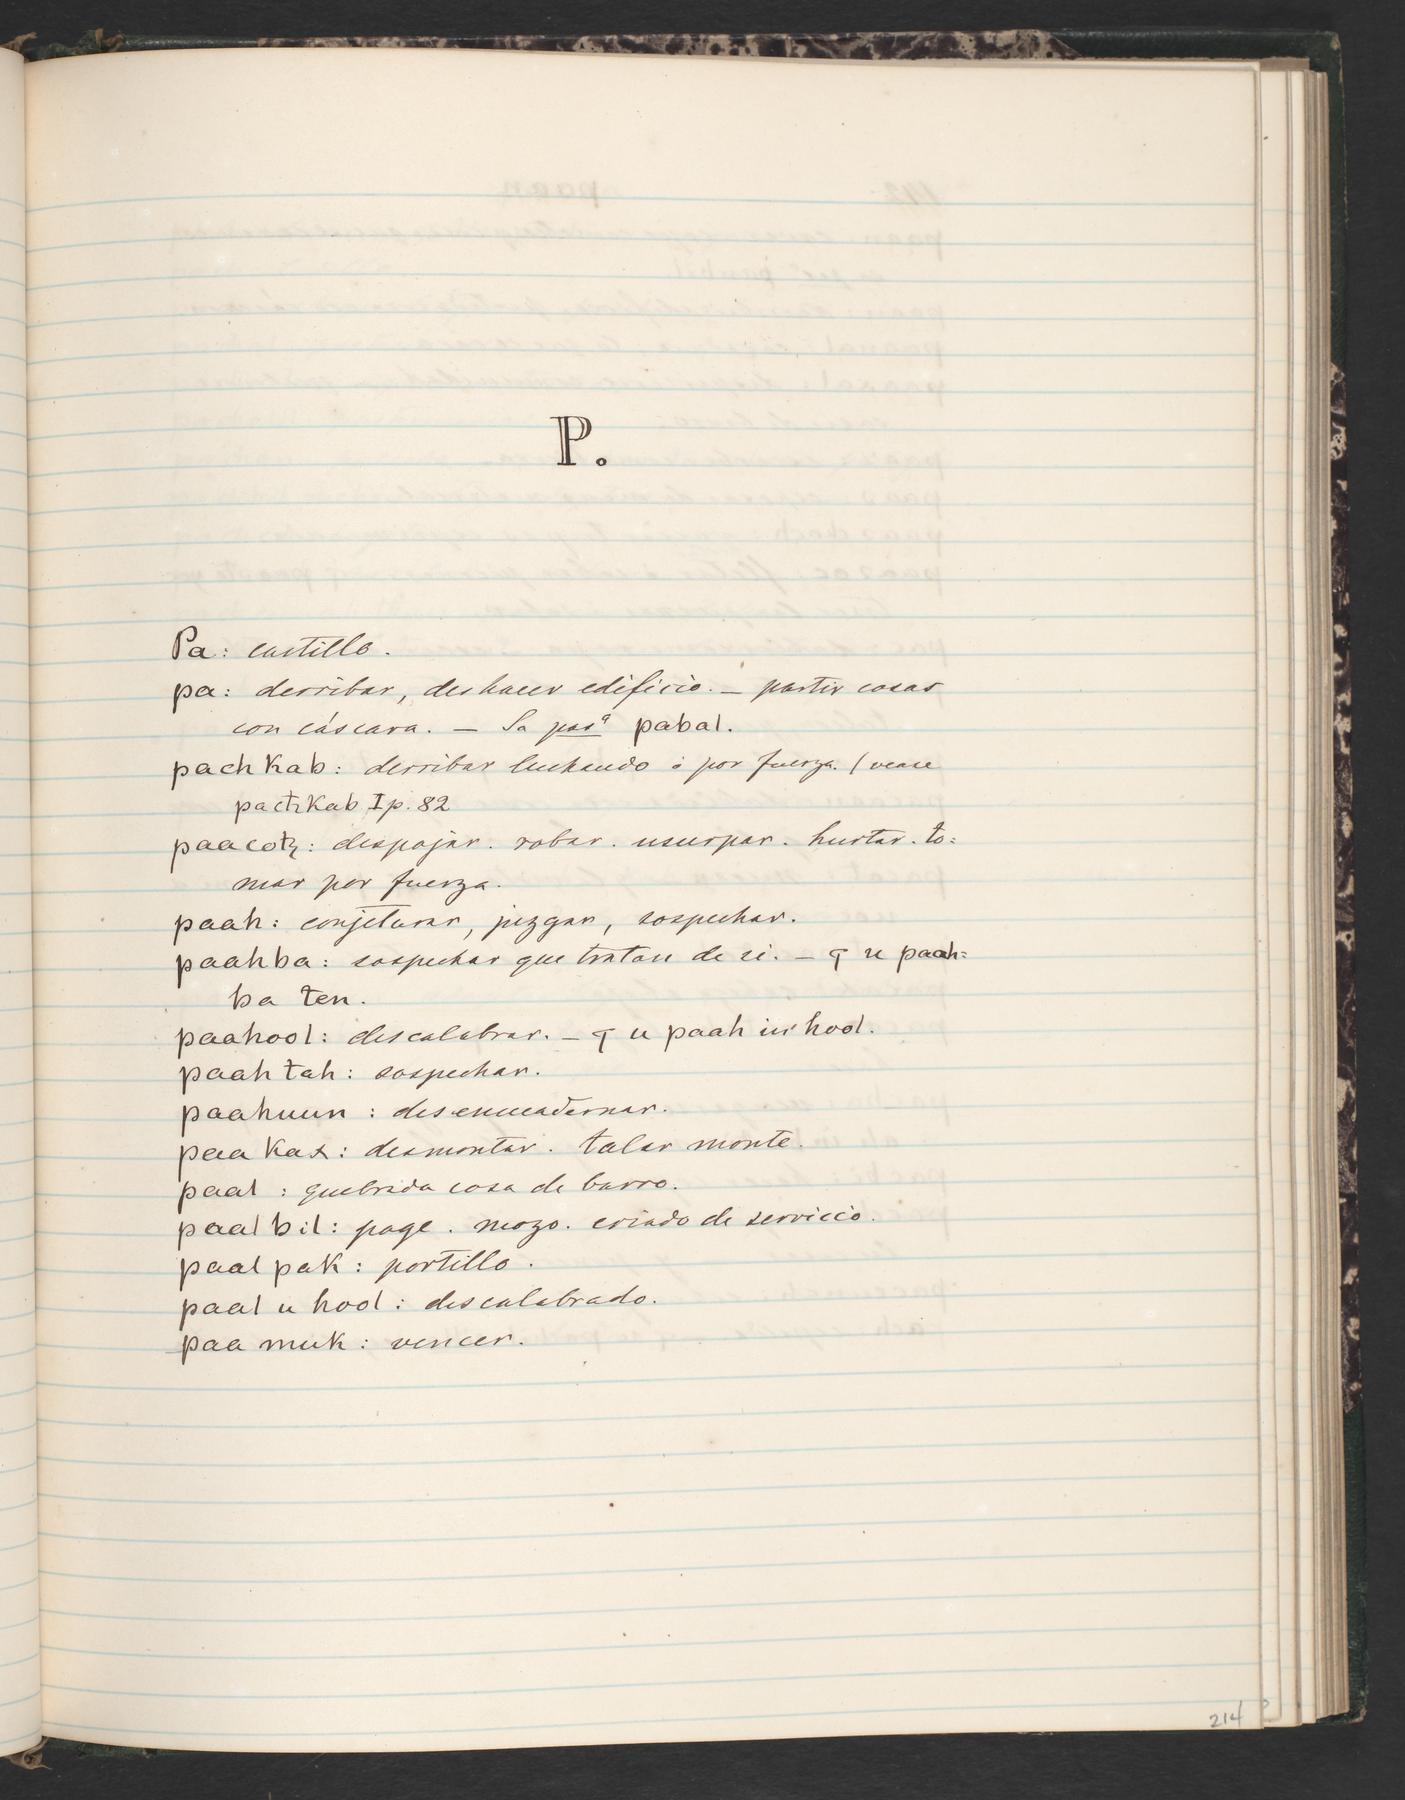 P.
Pa: castillo.
pa: derribar, deshacer edificio. — partir cosas
con cáscara. — Su pasª pabal.
pach kab: derribar luchando ó por fuerza. (vease
pachkab I p. 82
paacotz: despojar. robar. usurpar. hurtar. to=
mar por fuerza.
paah: conjeturar, juzgar, sospechar.
paahba: sospechar que tratan de si. — q u paah=
ba ten.
paahool: descalabrar. — q u paah in hool.
paah tah: sospechar.
paahuun: desencuadernar.
paa kax: desmontar. talar monte.
paal: quebrada cosa de barro.
paal bil: page. mozo. criado de servicio.
paal pak: portillo.
paal u hool: descalabrado.
paa muk: vencer.
214